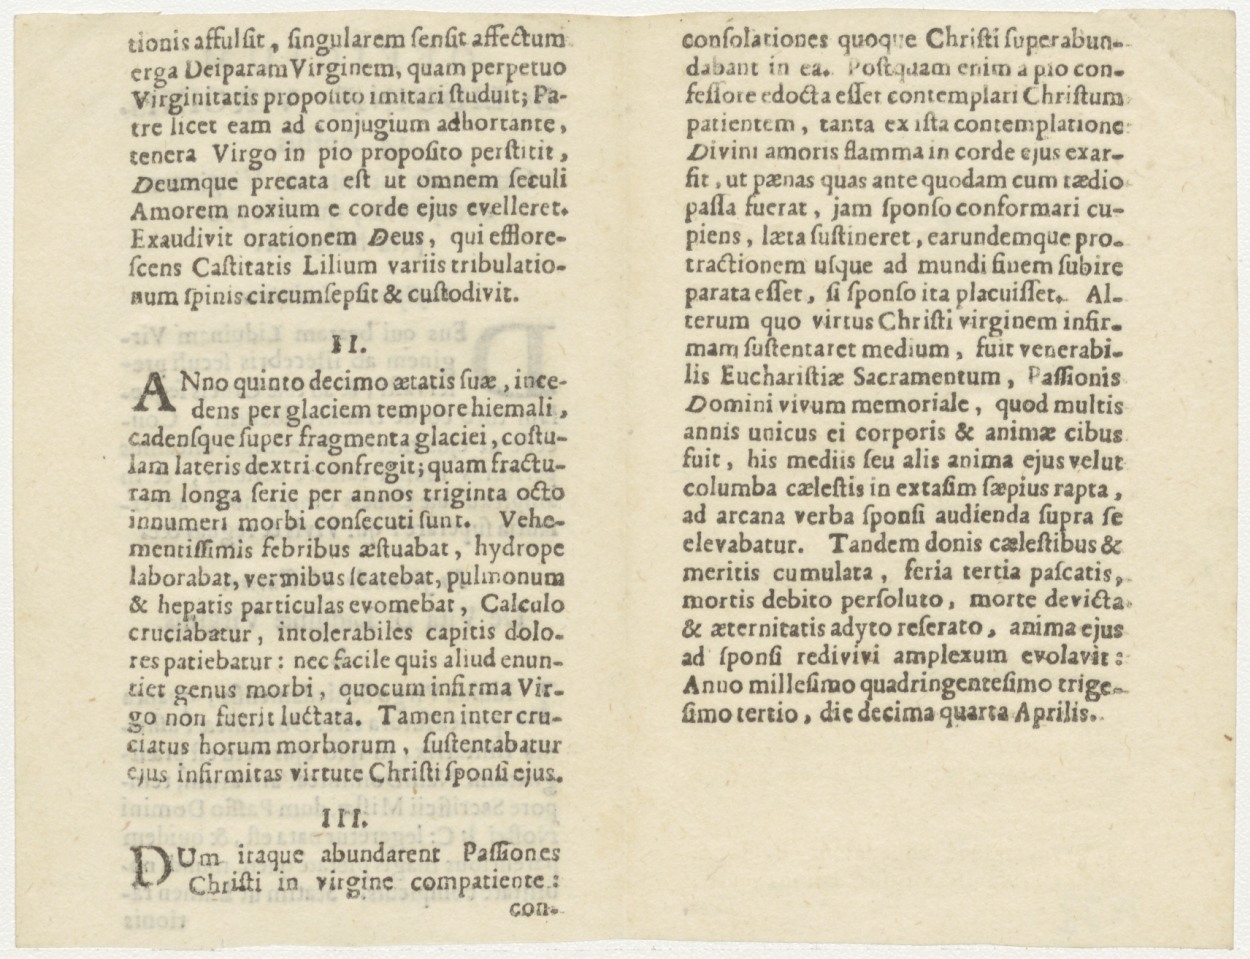 tionis affulſit, ſingularem ſenſit affectum
erga Deiparam Virginem, quam perpetuo
Virginitatis propoſito imitari ſtuduit; Pa-
tre licet eam ad conjugium adhortante,
tenera Virgo in pio propoſito perſtitit,
Deumque precata eſt ut omnem ſeculi
Amorem noxium e corde ejus evelleret.
Exaudivit orationem Deus, qui efflore-
ſcens Caſtitatis Lilium variis tribulatio-
num ſpinis circumſepſit & cuſtodivit.
II.
ANno quinto decimo ætatis ſuæ, ince-
dens per glaciem tempore hiemali,
cadenſque ſuper fragmenta glaciei, coſtu-
lam lateris dextri confregit; quam fractu-
ram longa ſerie per annos triginta octo
innumeri morbi conſecuti ſunt. Vehe-
mentiſſimis febribus æſtuabat, hydrope
laborabat, vermibus ſcatebat, pulmonum
& hepatis particulas evomebat, Calculo
cruciabatur, intolerabiles capitis dolo-
res patiebatur: nec facile quis aliud enun-
tiet genus morbi, quocum infirma Vir-
go non fuerit luctata. Tamen inter cru-
ciatus horum morborum, ſuſtentabatur
ejus infirmitas virtute Chriſti ſponſi ejus.
III.
DUm itaque abundarent Paſſiones
Chriſti in virgine compatiente:
con-
conſolationes quoque Chriſti ſuperabun-
dabant in ea. Poſtquam enim a pio con-
feſſore edocta eſſet contemplari Chriſtum
patientem, tanta ex iſta contemplatione
Divini amoris flamma in corde ejus exar-
ſit, ut pænas quas ante quodam cum tædio
paſſa fuerat, jam ſponſo conformari cu-
piens, læta ſuſtineret, earundemque pro-
tractionem uſque ad mundi finem ſubire
parata eſſet, ſi ſponſo ita placuiſſet. Al-
terum quo virtus Chriſti virginem infir-
mam ſuſtentaret medium, fuit venerabi-
lis Euchariſtiæ Sacramentum, Paſſionis
Domini vivum memoriale, quod multis
annis unicus ei corporis & animæ cibus
fuit, his mediis ſeu alis anima ejus velut
columba cæleſtis in extaſim ſæpius rapta,
ad arcana verba ſponſi audienda ſupra ſe
elevabatur. Tandem donis cæleſtibus &
meritis cumulata, feria tertia paſcatis,
mortis debito perſoluto, morte devicta
& æternitatis adyto reſerato, anima ejus
ad ſponſi redivivi amplexum evolavit:
Anno milleſimo quadringenteſimo trige-
ſimo tertio, die decima quarta Aprilis.